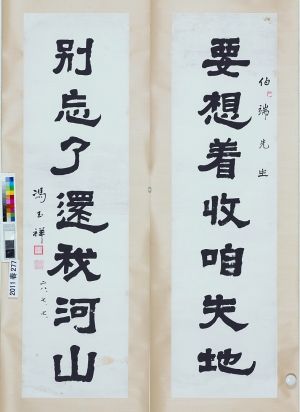 要想着收咱失地
伯瑞先生
别忘了還我河山
馮玉祥
六.七.七.
2011 書 277